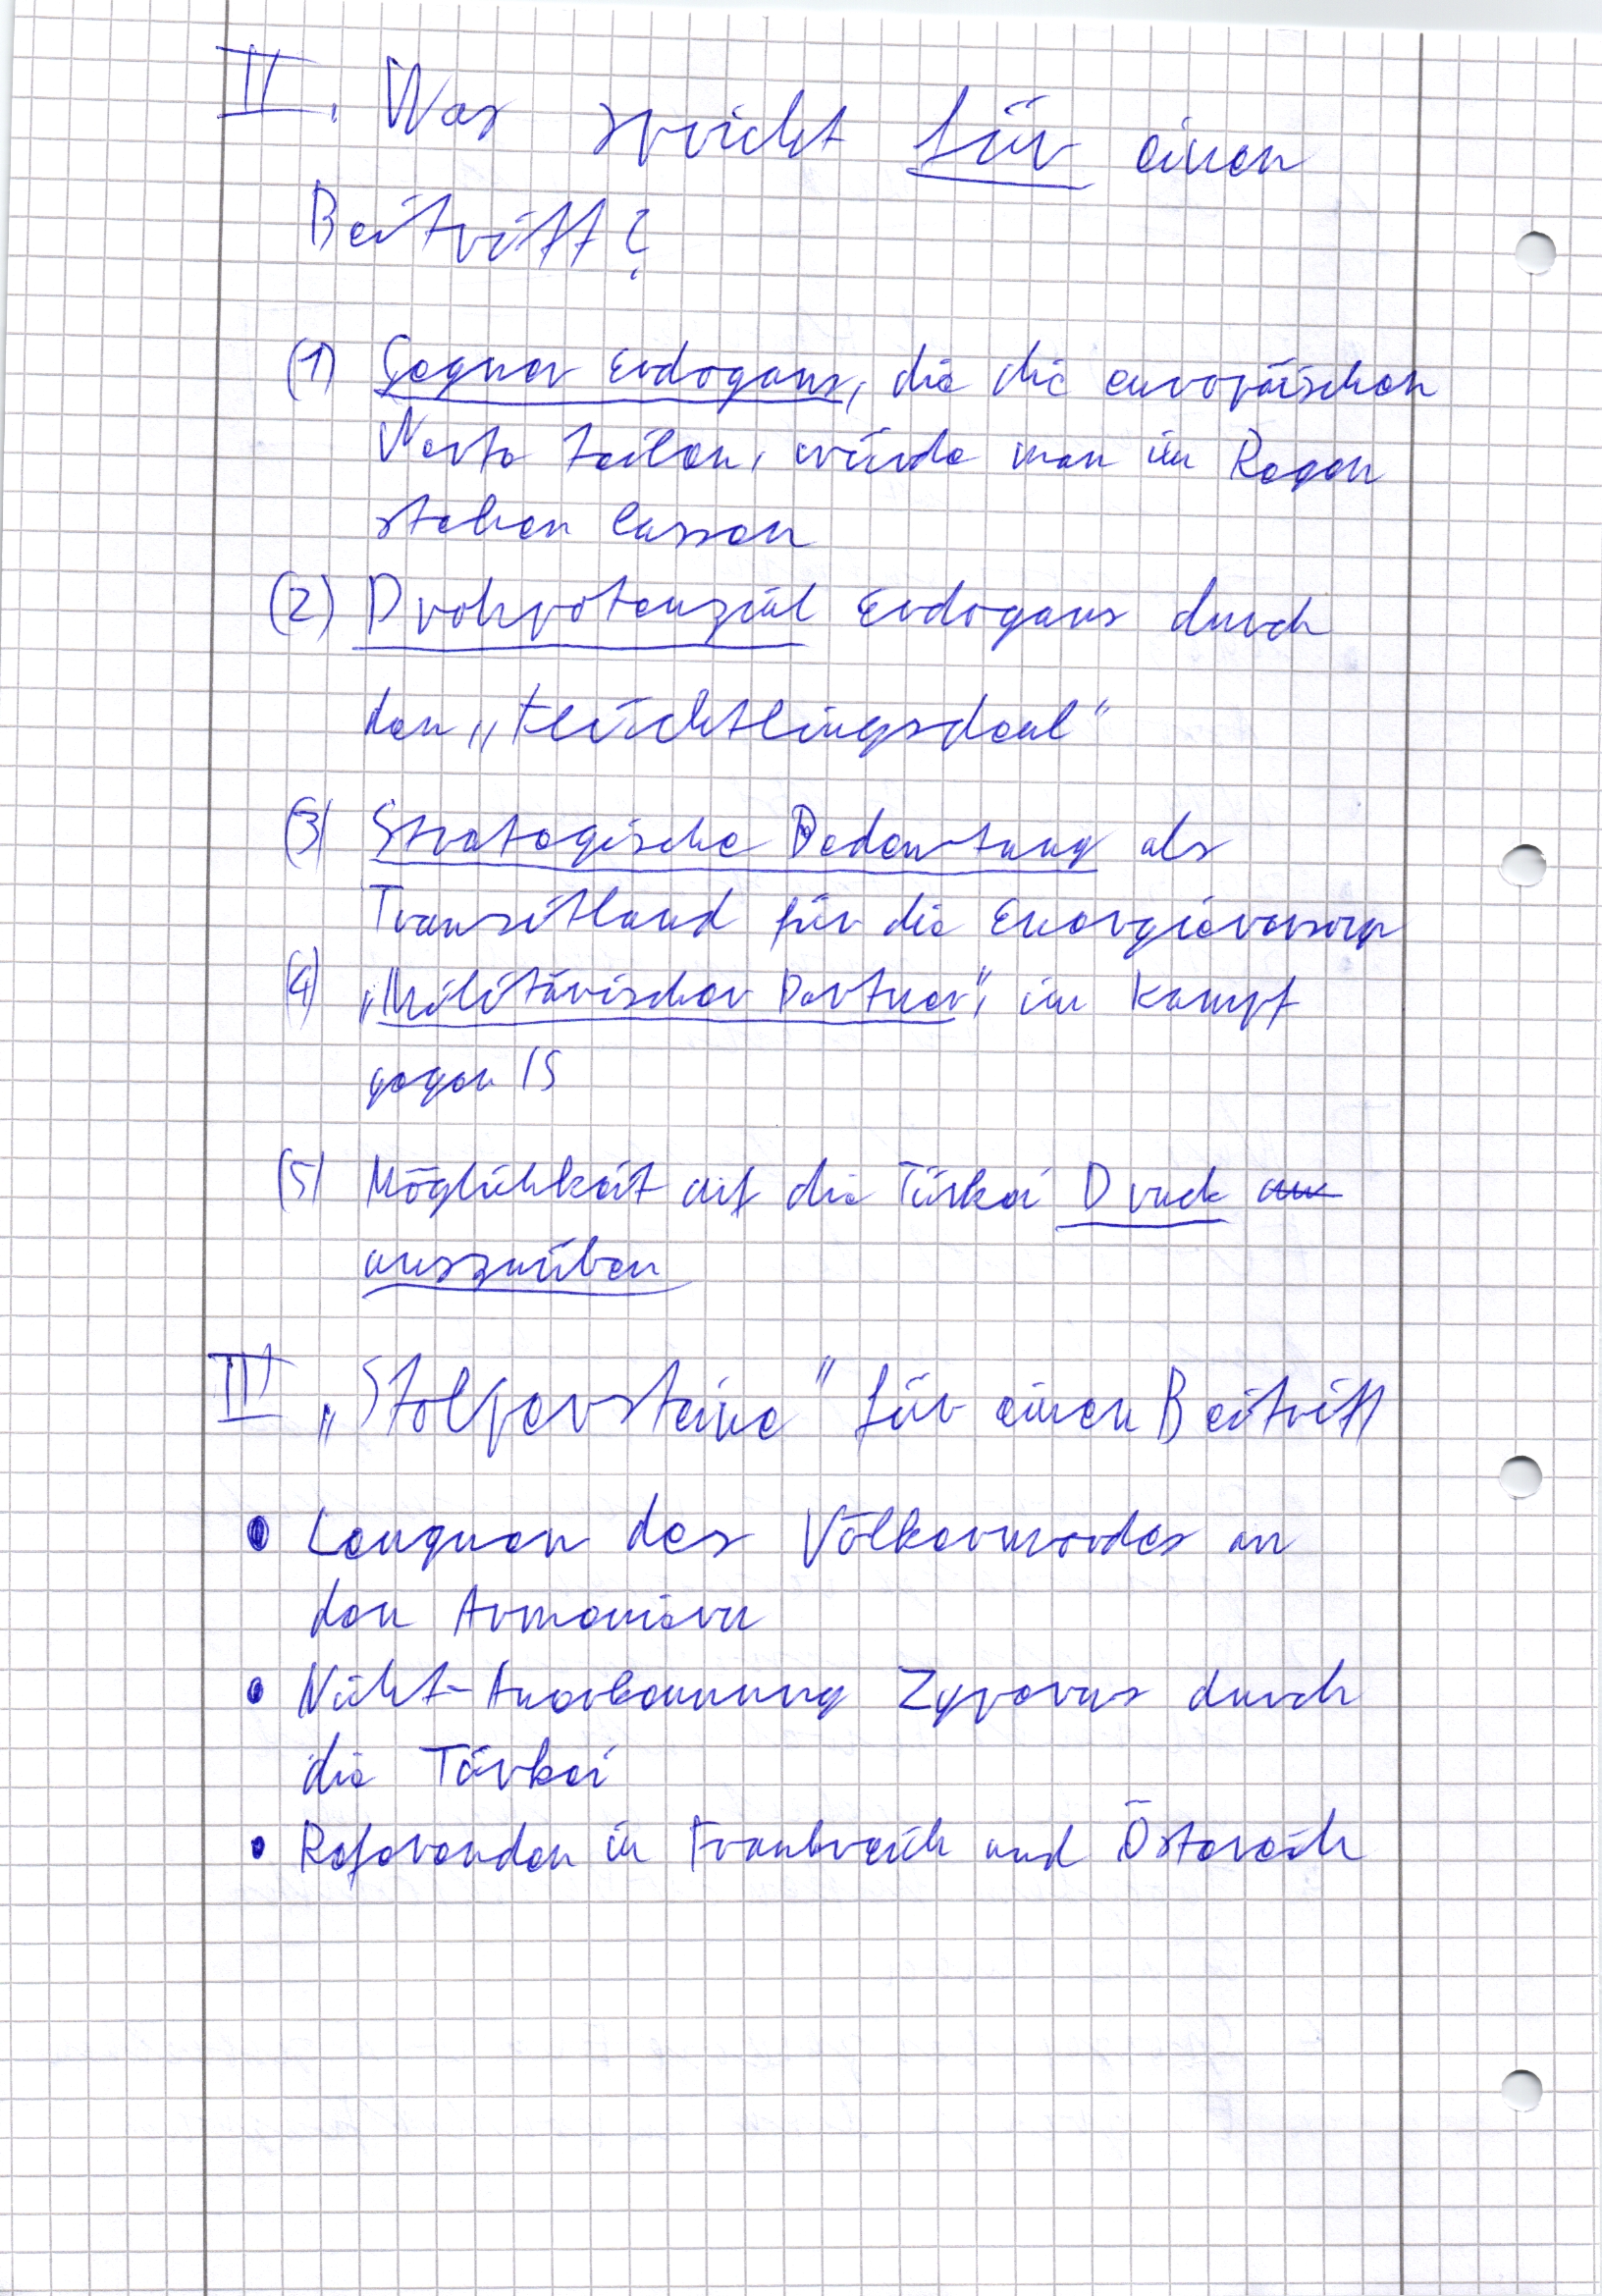 II. Was spricht für einen
Beitritt?
(1) Gegner Erdogans, die die europäischen
Werte teilen, würde man im Regen
stehen lassen
(2) Drohpotenzial Erdogans durch
den „Flüchtlingsdeal“
(3) Strategische Bedeutung als
Transitland für die Energieversorg
(4) „Militärischer Partner“, im Kampf
gegen IS
(5) Möglichkeit auf die Türkei Druck
auszuüben
III „Stolpersteine“ für einen Beitritt
• Leugnen des Völkermordes an
den Armeniern
• Nicht-Anerkennung Zyperns durch
die Türkei
• Referenden in Frankreich und Östereich